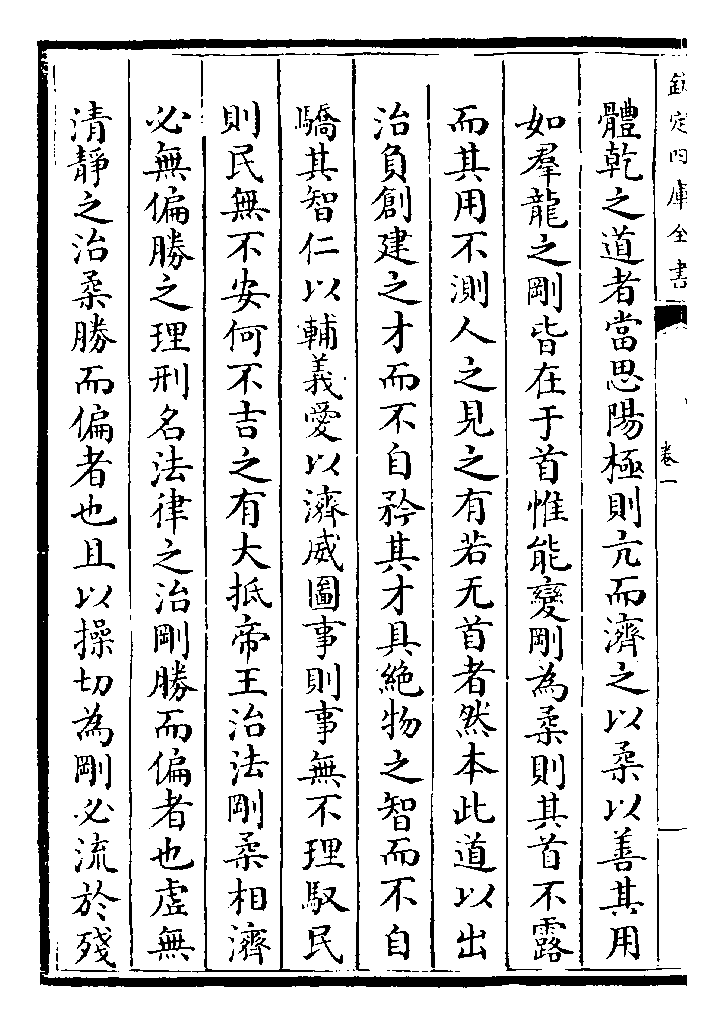 欽定四庫全書
卷一
體乾之道者當思陽極則亢而濟之以柔以善其用
如羣龍之剛皆在于首惟能變剛為柔則其首不露
而其用不測人之見之有若无首者然本此道以出
治負創建之才而不自矜其才具絶物之智而不自
驕其智仁以輔義愛以濟威圖事則事無不理馭民
則民無不安何不吉之有大抵帝王治法剛柔相濟
必無偏勝之理刑名法律之治剛勝而偏者也虛無
清靜之治柔勝而偏者也且以操切為剛必流於殘